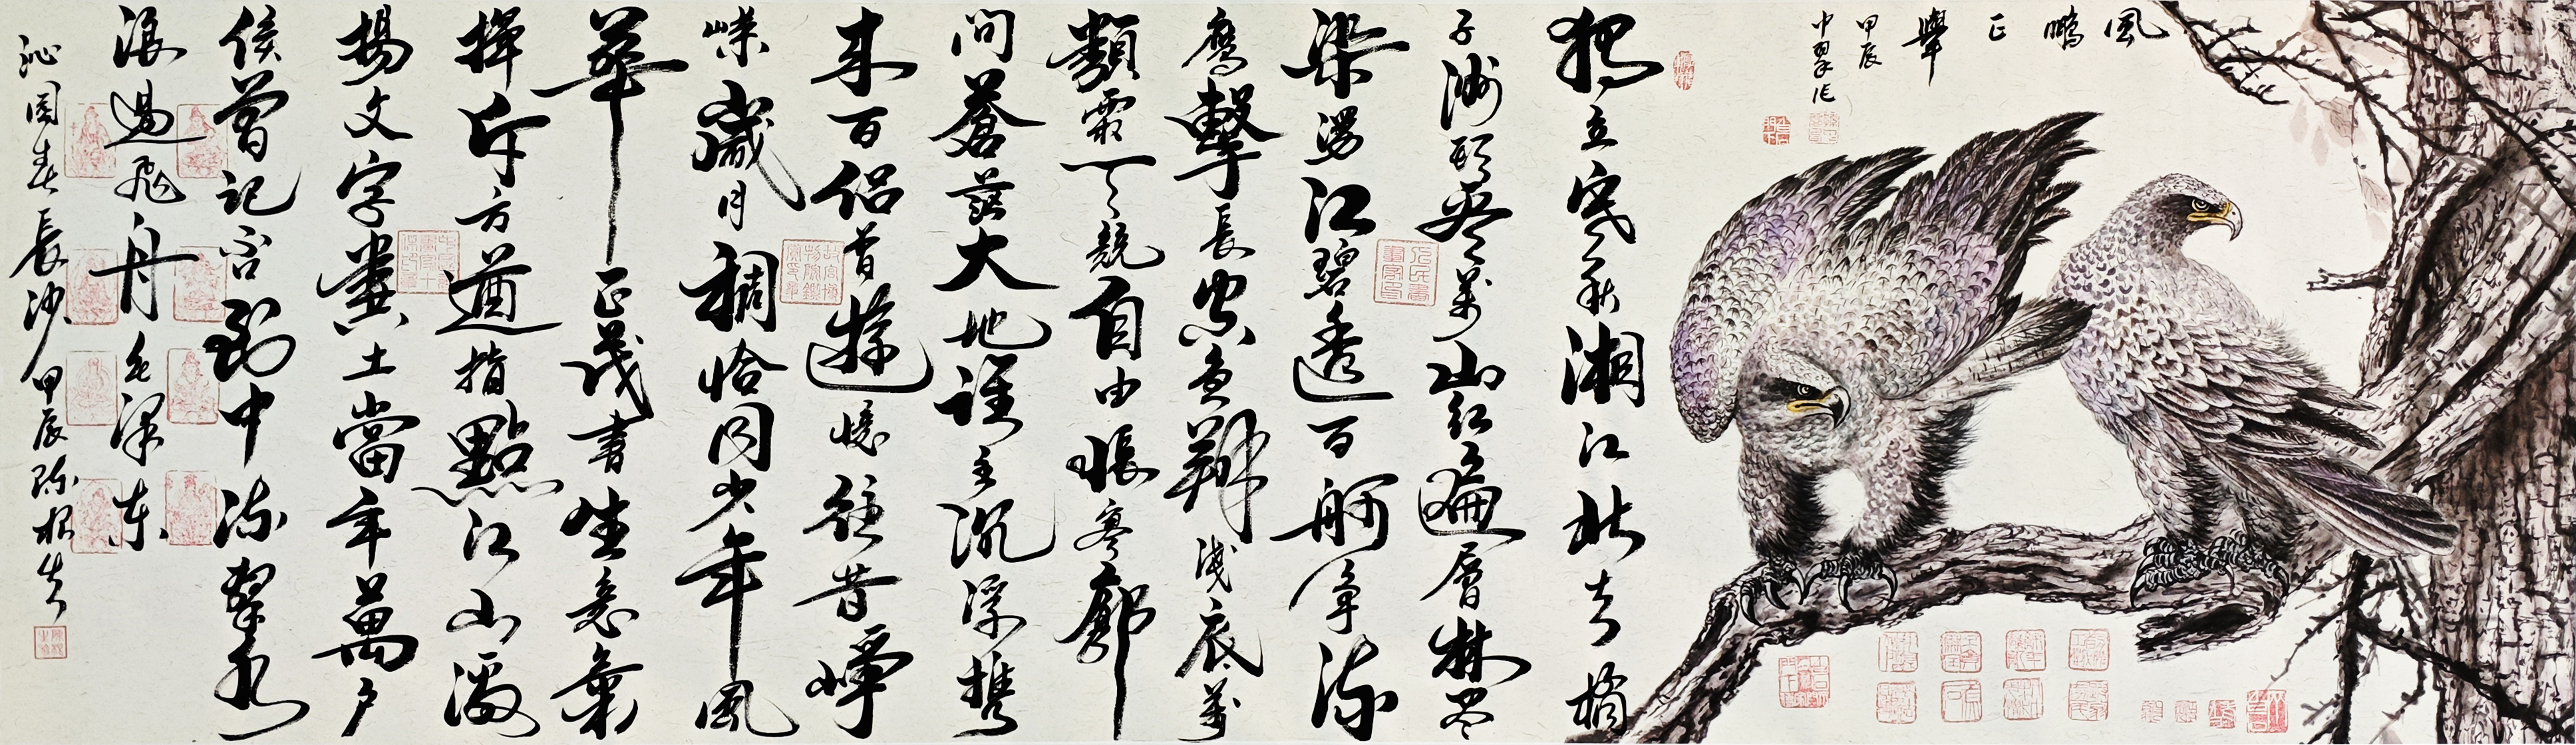 風鵬正舉
甲辰
獨立寒秋湘江北去橘
子洲頭看萬山紅遍層林尽
染漫江碧透百舸爭流
鷹擊長空魚翔淺底萬
類霜天競自由悵寥廓
問蒼茫大地誰主沉浮攜
来百侶曾遊憶往昔崢
嶸歲月稠恰同少年風
華正茂書生意氣
揮斥方遒指點江山激
揚文字糞土當年萬戶
侯曾記否到中流擊水
浪遏飛舟毛澤东
沁園春長沙甲辰